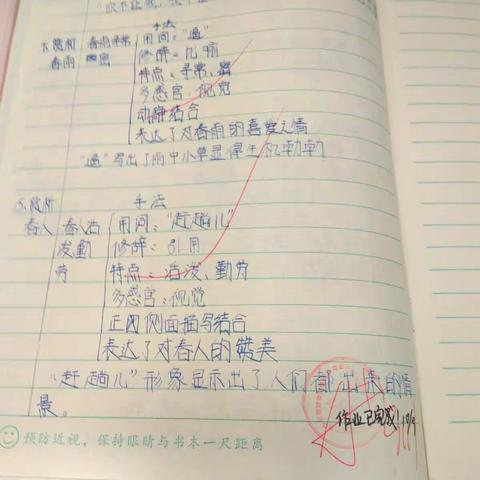 手法
春雨 春雨寻常 用词："逼"
春雨 密 修辞：比喻
特点：寻常、密
多感官：视觉
动静结合
表达了对春雨的喜爱之情
"逼"写出了雨中小草显得生机勃勃
手法
春人 春人活 用词："赶趟儿"
发勤 修辞：引用
劳 特点：活泼、勤劳
多感官：视觉
正面侧面描写结合
表达了对春人的赞美
"赶趟儿"形象显示出了人们都出来的情
景。
预防近视，保持眼睛与书本一尺距离
作业已完成